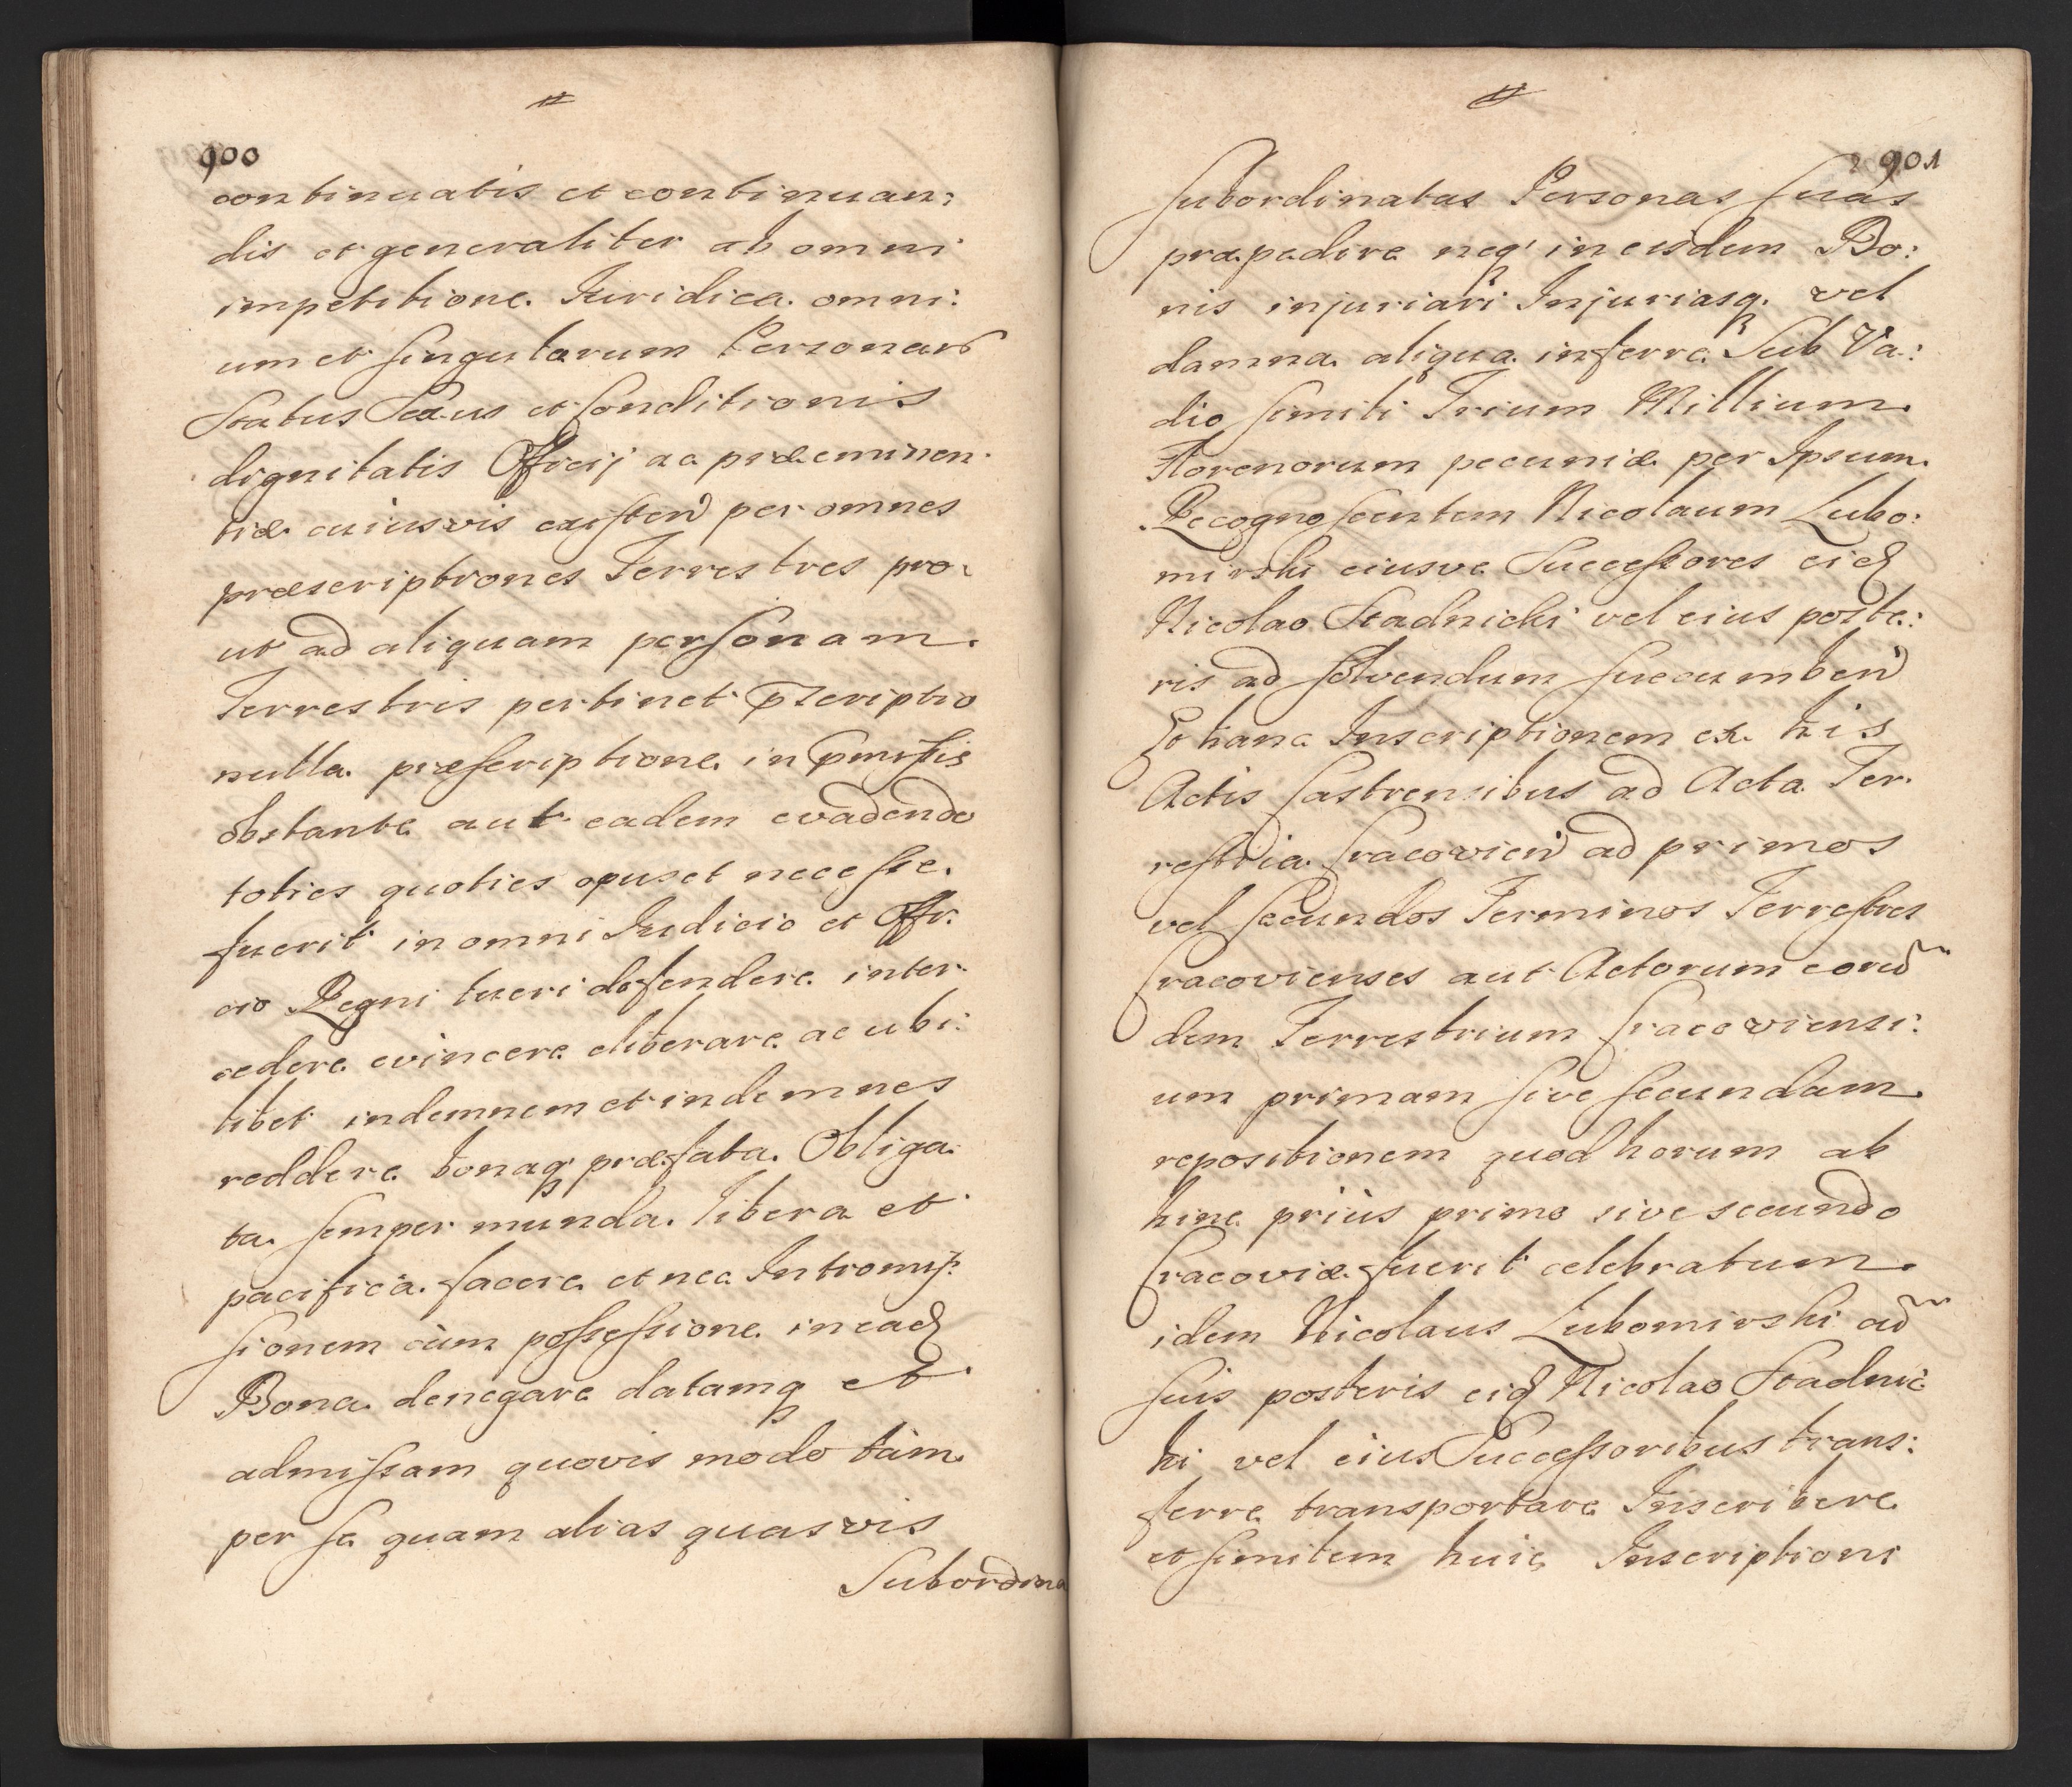 900
continuatis et continuan:
dis et generaliter ab omni
impetitione Iuridica omni:
um et singularum Personarū
Status Sexus et Conditionis
dignitatis Officij ac præeminen:
tiæ cuiusvis existeń per omnes
præscriptiones Terrestres pro:
ut ad aliquam personam
Terrestris pertinet p̄scriptio
nulla præscriptione in p̄missis
obstante aut eadem evadendo
toties quoties opus et necesse
fuerit in omni Iudicio et Offi:
cio Regni tueri defendere inter:
cedere evincere eliberare ac ubi:
libet indemnem et indemnes
reddere bonaq' præfata Obliga:
ta semper munda libera et
pacifica facere et nec Intromis:
sionem cùm possessione in eadꝫ
Bona denegare datamq et
admissam quovis modo tàm
per se quam alias quasvis
Subordina
901
subordinatas Personas suas
præpedire neq' in eisdem Bo:
nis injuriari Injuriasq. vel
damna aliqua inferre Sub Va:
dio simili Trium Millium
Florenorum pecuniæ per Ipsum
Recognoscentem Nicolaum Lubo:
mirski eiusve Successores eidꝫ
Nicolao Stadnicki vel eius poste:
ris ad solvendum succumbeń
Et hanc Inscriptionem ex his
Actis Castrensibus ad Acta Ter:
restria Cracovień ad primos
vel secundos Terminos Terrestres
Cracovienses aut Actorum eorū
dem Terrestrium Cracoviensi:
um primam sive secundam
repositionem quod horum ab
hinc priùs primo sive secundo
Cracoviæ fuerit celebratum
idem Nicolaus Lubomirski cū
suis posteris eidꝫ Nicolao Stadnic
ki vel eius Successoribus trans:
ferre transportare Inscribere
et similem huic Inscriptioni